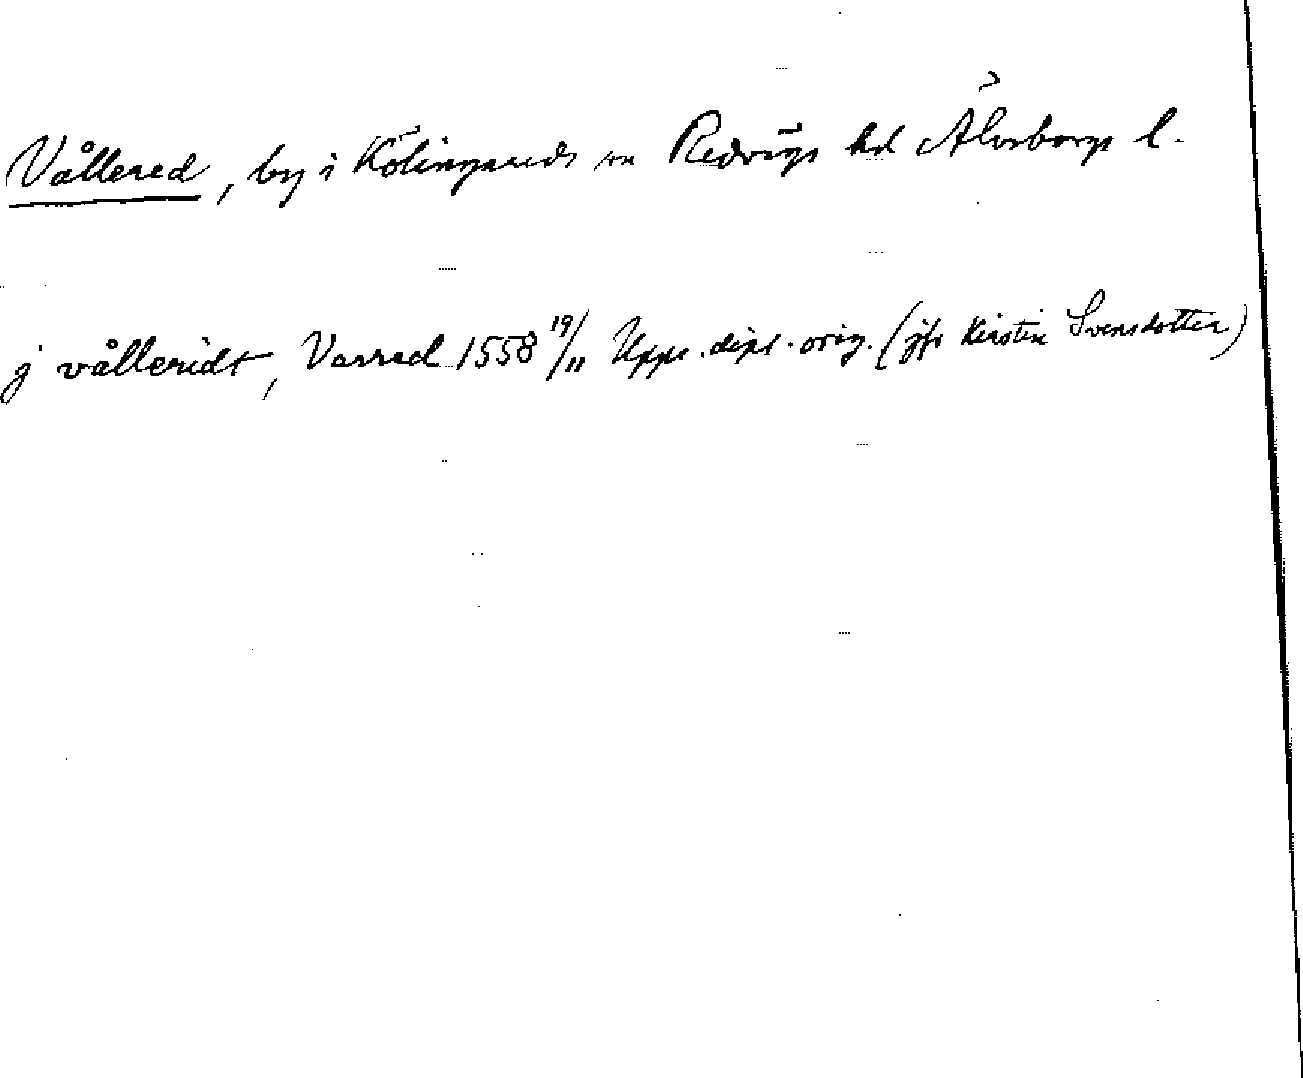 Vållered, by i Kölingareds sn Redvägs hd Älvsborgs l.
j vålleridt, Varred 1558 19/11 Upps. dipl. orig. (jfr Kirstin Svensdotter)